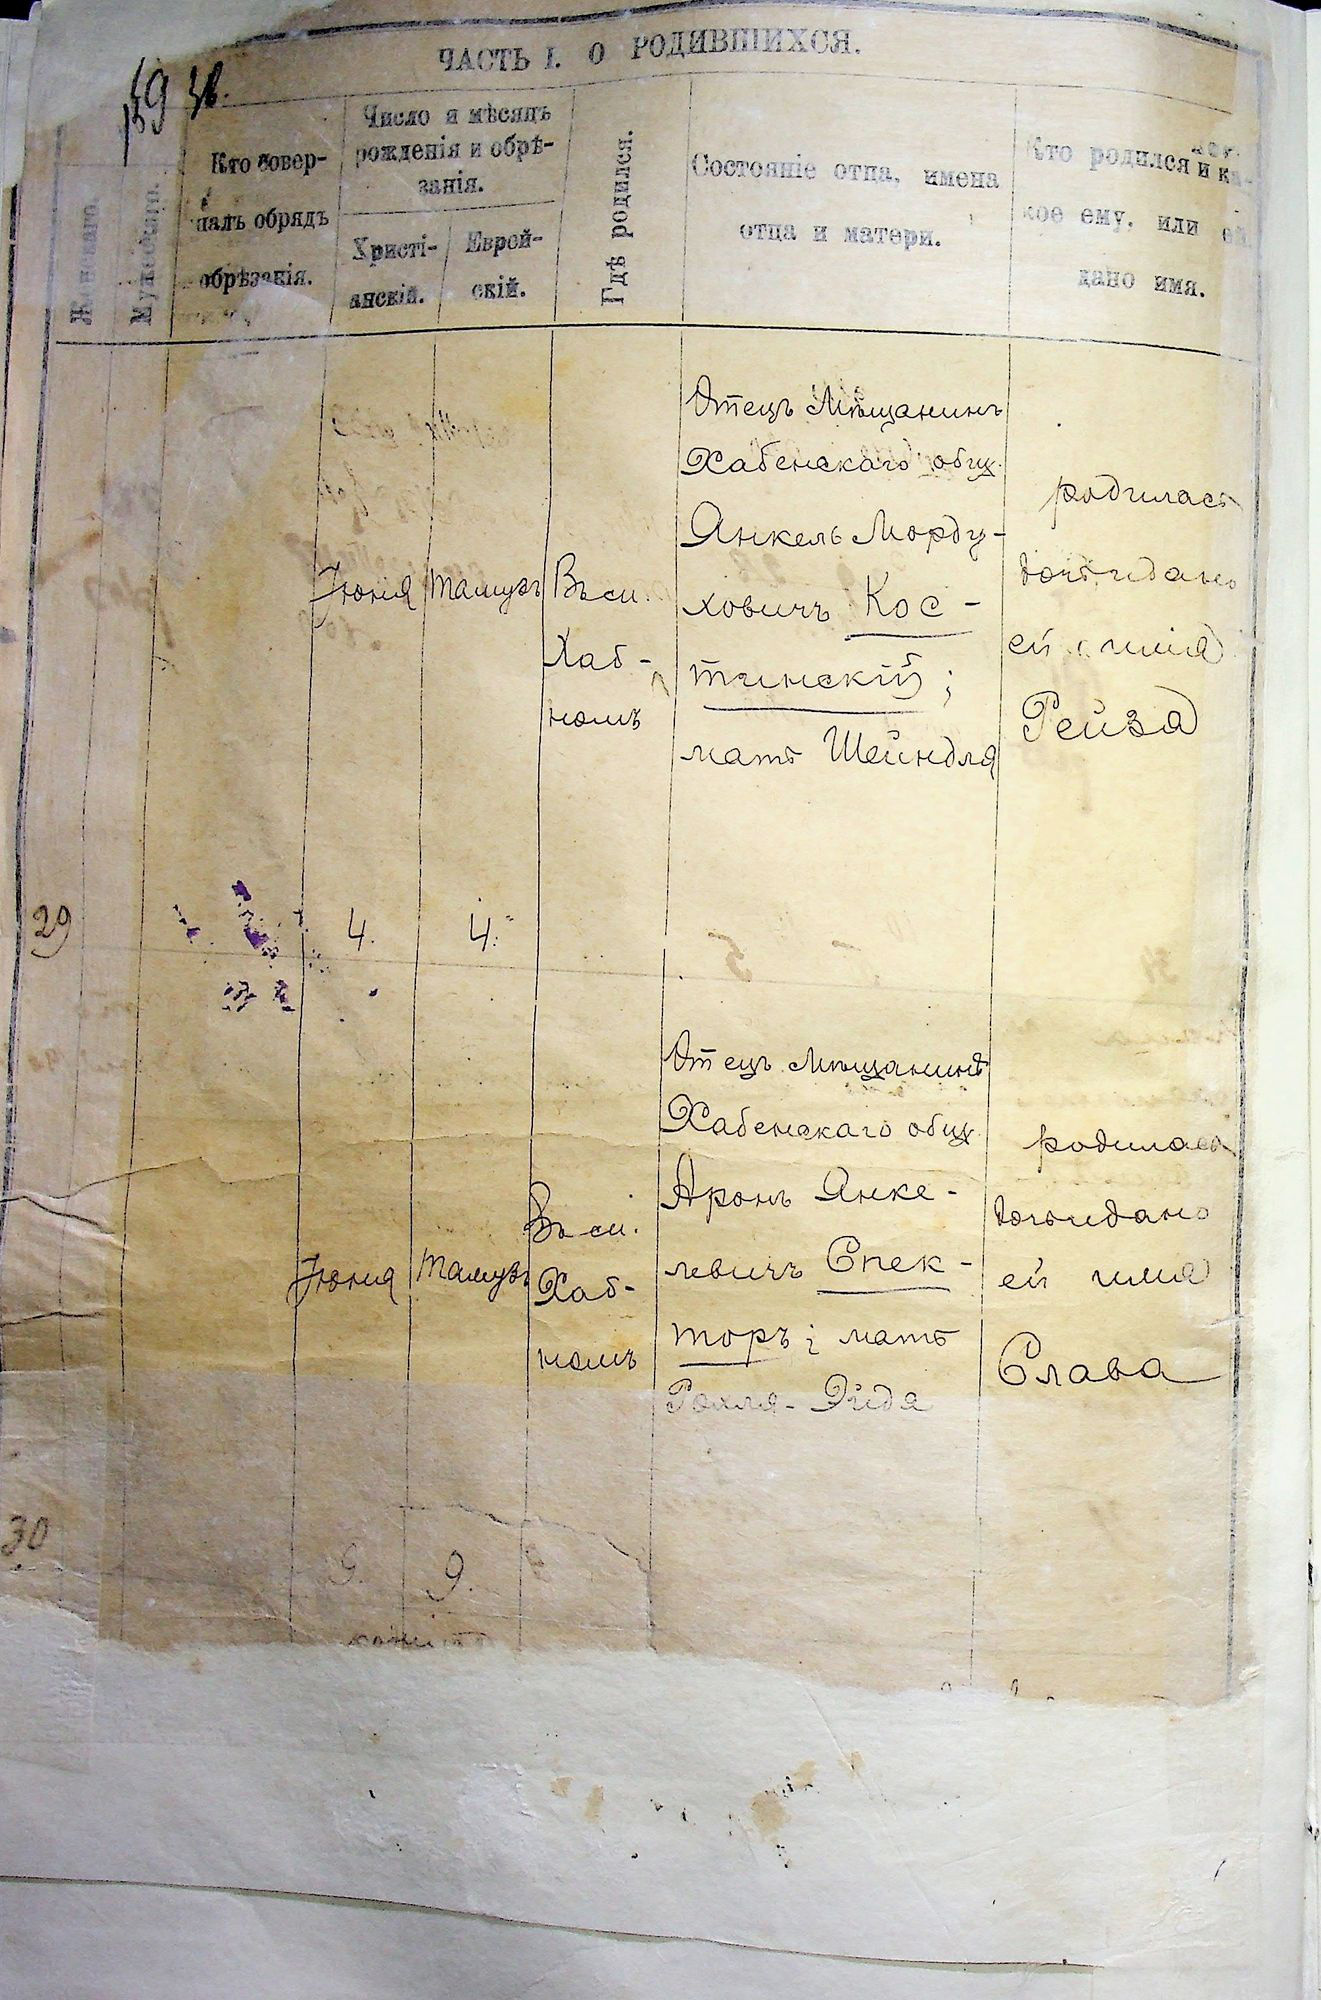 ЧАСТЬ I. О РОДИВШИХСЯ.
Женскаго.
Мужескаго.
Кто совер-
шалъ обрядъ
обрѣзанія.
Число и мѣсяцъ
рожденія и обрѣ-
занія.
Христі-
анскій.
Еврей-
скій.
Гдѣ родился.
Состояніе отца, имена
отца и матери.
Кто родился и ка-
кое ему, или ей
дано имя.
29
Іюня
4.
Тамузъ
4.
Въ м.
Хаб-
номъ
Отецъ Мѣщанинъ
Хабенскаго общ.
Янкель Морду-
ховичъ Кос-
тинскій;
мать Шейндля
родилась
дочь и дано
ей имя
Рейза
30
Іюня
9.
Тамузъ
9.
Въ м.
Хаб-
номъ
Отецъ Мѣщанинъ
Хабенскаго общ.
Аронъ Янке-
левичъ Спек-
торъ; мать
Рохля-Эйдя
родилась
дочь и дано
ей имя
Слава